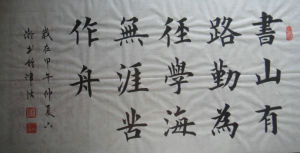 書山有
路勤為
徑學海
無涯苦
作舟
歲在甲午仲夏六